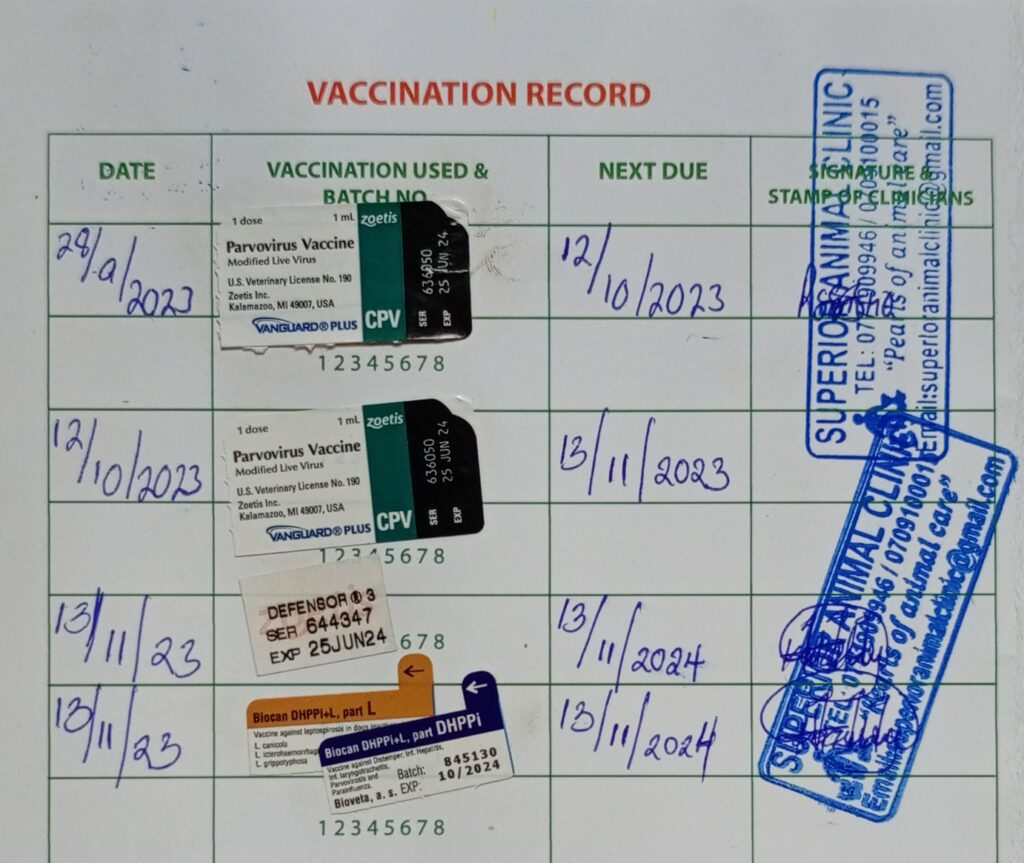 VACCINATION RECORD
DATE
VACCINATION USED &
BATCH NO
NEXT DUE
SIGNATURE &
STAMP OF CLINICIANS
28/9/2023
1 dose 1 mL zoetis
Parvovirus Vaccine
Modified Live Virus
U.S. Veterinary License No. 190
Zoetis Inc.
Kalamazoo, MI 49007, USA
VANGUARD® PLUS CPV
SER 636050
EXP 25 JUN 24
12/10/2023
1 2 3 4 5 6 7 8
12/10/2023
1 dose 1 mL zoetis
Parvovirus Vaccine
Modified Live Virus
U.S. Veterinary License No. 190
Zoetis Inc.
Kalamazoo, MI 49007, USA
VANGUARD® PLUS CPV
SER 636050
EXP 25 JUN 24
13/11/2023
1 2 3 4 5 6 7 8
13/11/23
DEFENSOR® 3
SER 644347
EXP 25JUN24
6 7 8
13/11/2024
13/11/23
Biocan DHPPi+L, part L
Vaccine against leptospirosis in dogs
L. canicola
L. icterohaemorrhag
L. grippotyphosa
Biocan DHPPi+L, part DHPPi
Vaccine against Distemper, Inf. Hepatitis,
Inf. laryngotracheitis,
Parvovirosis and
Parainfluenza.
Batch: 845130
EXP: 10/2024
Bioveta, a. s.
13/11/2024
1 2 3 4 5 6 7 8
SUPERIOR ANIMAL CLINIC
/ 0709100015
"Pearls of animal care"
Email:superioranimalclinic@gmail.com
SUPERIOR ANIMAL CLINIC
"Pearls of animal care"
Email:superioranimalclinic@gmail.com